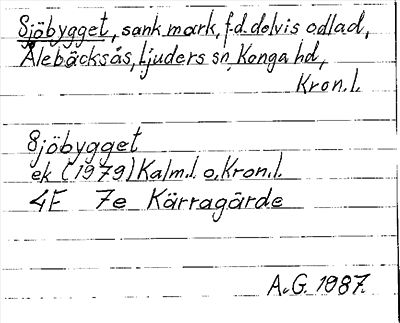 Sjöbygget, sank mark, f.d. delvis odlad,
Ålebäcksås, Ljuders sn, Konga hd,
Kron.l.
Sjöbygget
ek (1979) Kalm.l. o. Kron.l.
4E 7e Kärragärde
A.G. 1987.